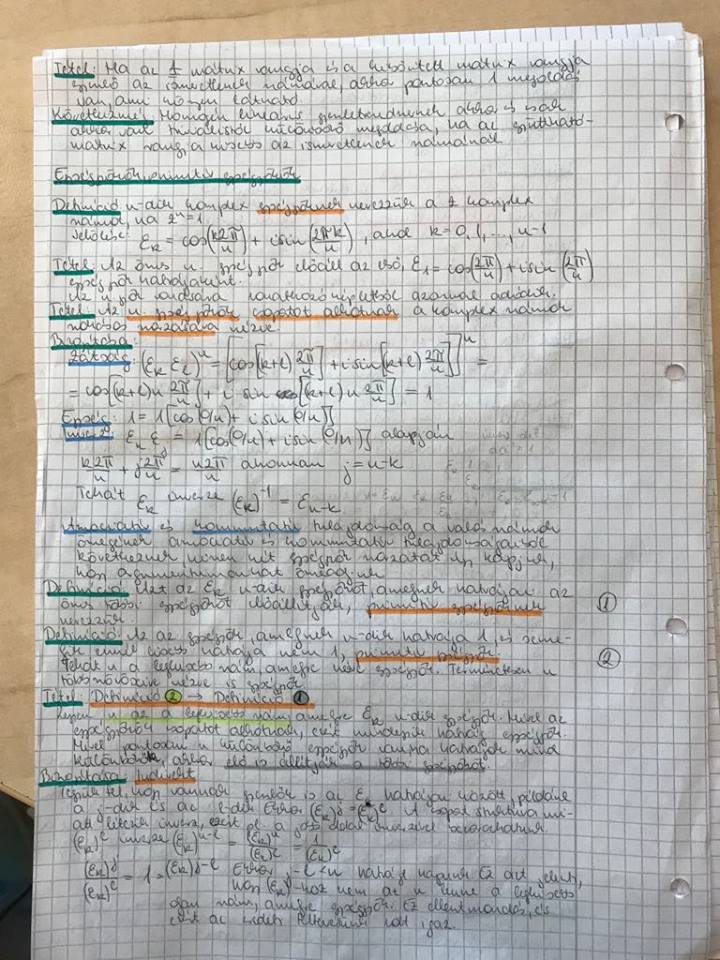 Tétel: Ha az A mátrix rangja és a kibővített mátrix rangja
egyenlő az ismeretlenek számával, akkor pontosan 1 megoldás
van, ami
Következmény: Homogén lineáris egyenletrendszernek akkor és csak
akkor van triviálistól különböző megoldása, ha az együttható-
mátrix rangja kisebb az ismeretlenek számánál
Egységgyökök, primitív egységgyök
Definíció: n-dik komplex egységgyöknek nevezzük a z komplex
számot, ha zⁿ=1
Jelölése: εk = cos(k2π/n) + i sin(2πk/n), ahol k=0,1,...,n-1
Tétel: Az összes n. egységgyök előáll az első, ε1=cos(2π/n)+i sin(2π/n)
egységgyök hatványaként.
Az n. gyök vonatkozó képletből azonnal adódik.
Tétel: Az n. egységgyökök csoportot alkotnak a komplex számok
szorzására nézve.
Bizonyítása:
Zártság: (εk εl)ⁿ = [cos[(k+l)2π/n] + i sin[(k+l)2π/n]]ⁿ =
= cos[(k+l)n 2π/n] + i sin [(k+l)n 2π/n] = 1
Egység: 1=1[cos(0/n)+ i sin(0/n)]
Inverz: εk εj = 1[cos(0/n)+i sin(0/n)] alapján
k2π/n + j2π/n = n2π/n ahonnan j=n-k
Tehát εk inverze (εk)⁻¹ = εn-k
Asszociatív és kommutatív tulajdonság a valós számok
összegének asszociatív és kommutatív tulajdonságából
következnek, hiszen két egységgyök szorzatát úgy kapjuk,
hogy argumentumaikat összeadjuk
Definíció: Azt az εk n-dik egységgyököt, amelynek hatványai az
összes többi egységgyököt előállítják, primitív egységgyöknek
nevezzük ①
Definíció: Az az egységgyök, amelynek n-dik hatványa 1, és semelyik
ennél kisebb hatványa nem 1, primitív egységgyök. ②
Tehát n a legkisebb szám, amelyre nézve egységgyök. Természetesen n
többszöröseire nézve is egységgyök
Tétel: Definíció ② → Definíció ①
Legyen n az a legkisebb szám, amelyre εk n-dik egységgyök. Mivel az
egységgyökök csoportot alkotnak, ezért mindegyik hatvány egységgyök.
Mivel pontosan n különböző egységgyök van, ha hatványai mind
különbözőek, akkor elő is állítják a többi egységgyököt.
Bizonyítása: Indirekt
Tegyük fel, hogy vannak egyenlők is az εk hatványai között, például
a j-dik és az l-dik. Ekkor (εk)ʲ = (εk)ˡ. A csoport struktúra mi-
att létezik inverz, ezért pl. a jobb oldal inverzével
(εk)ˡ inverze (εk)ⁿ⁻ˡ = (εk)ⁿ/(εk)ˡ = 1/(εk)ˡ
(εk)ʲ/(εk)ˡ = 1 = (εk)ʲ⁻ˡ Ekkor j-l<n hatványt kapunk. Ez azt jelenti,
hogy (εk)-hoz nem az n lenne a legkisebb
olyan szám, amelyre egységgyök. Ez ellentmondás, és
ezért az eredeti feltevésünk volt igaz.